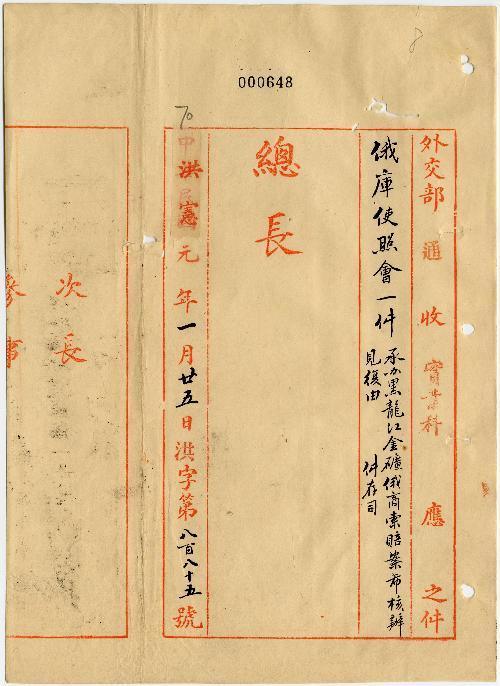 8
000648
70
外交部 通 收 實業科 應 之件
俄庫使照會一件
承办黑龍江金礦俄商索賠案希核辦
見復由 件存司
總長
洪憲元年一月廿五日洪字第八百八十五號
次長
參事